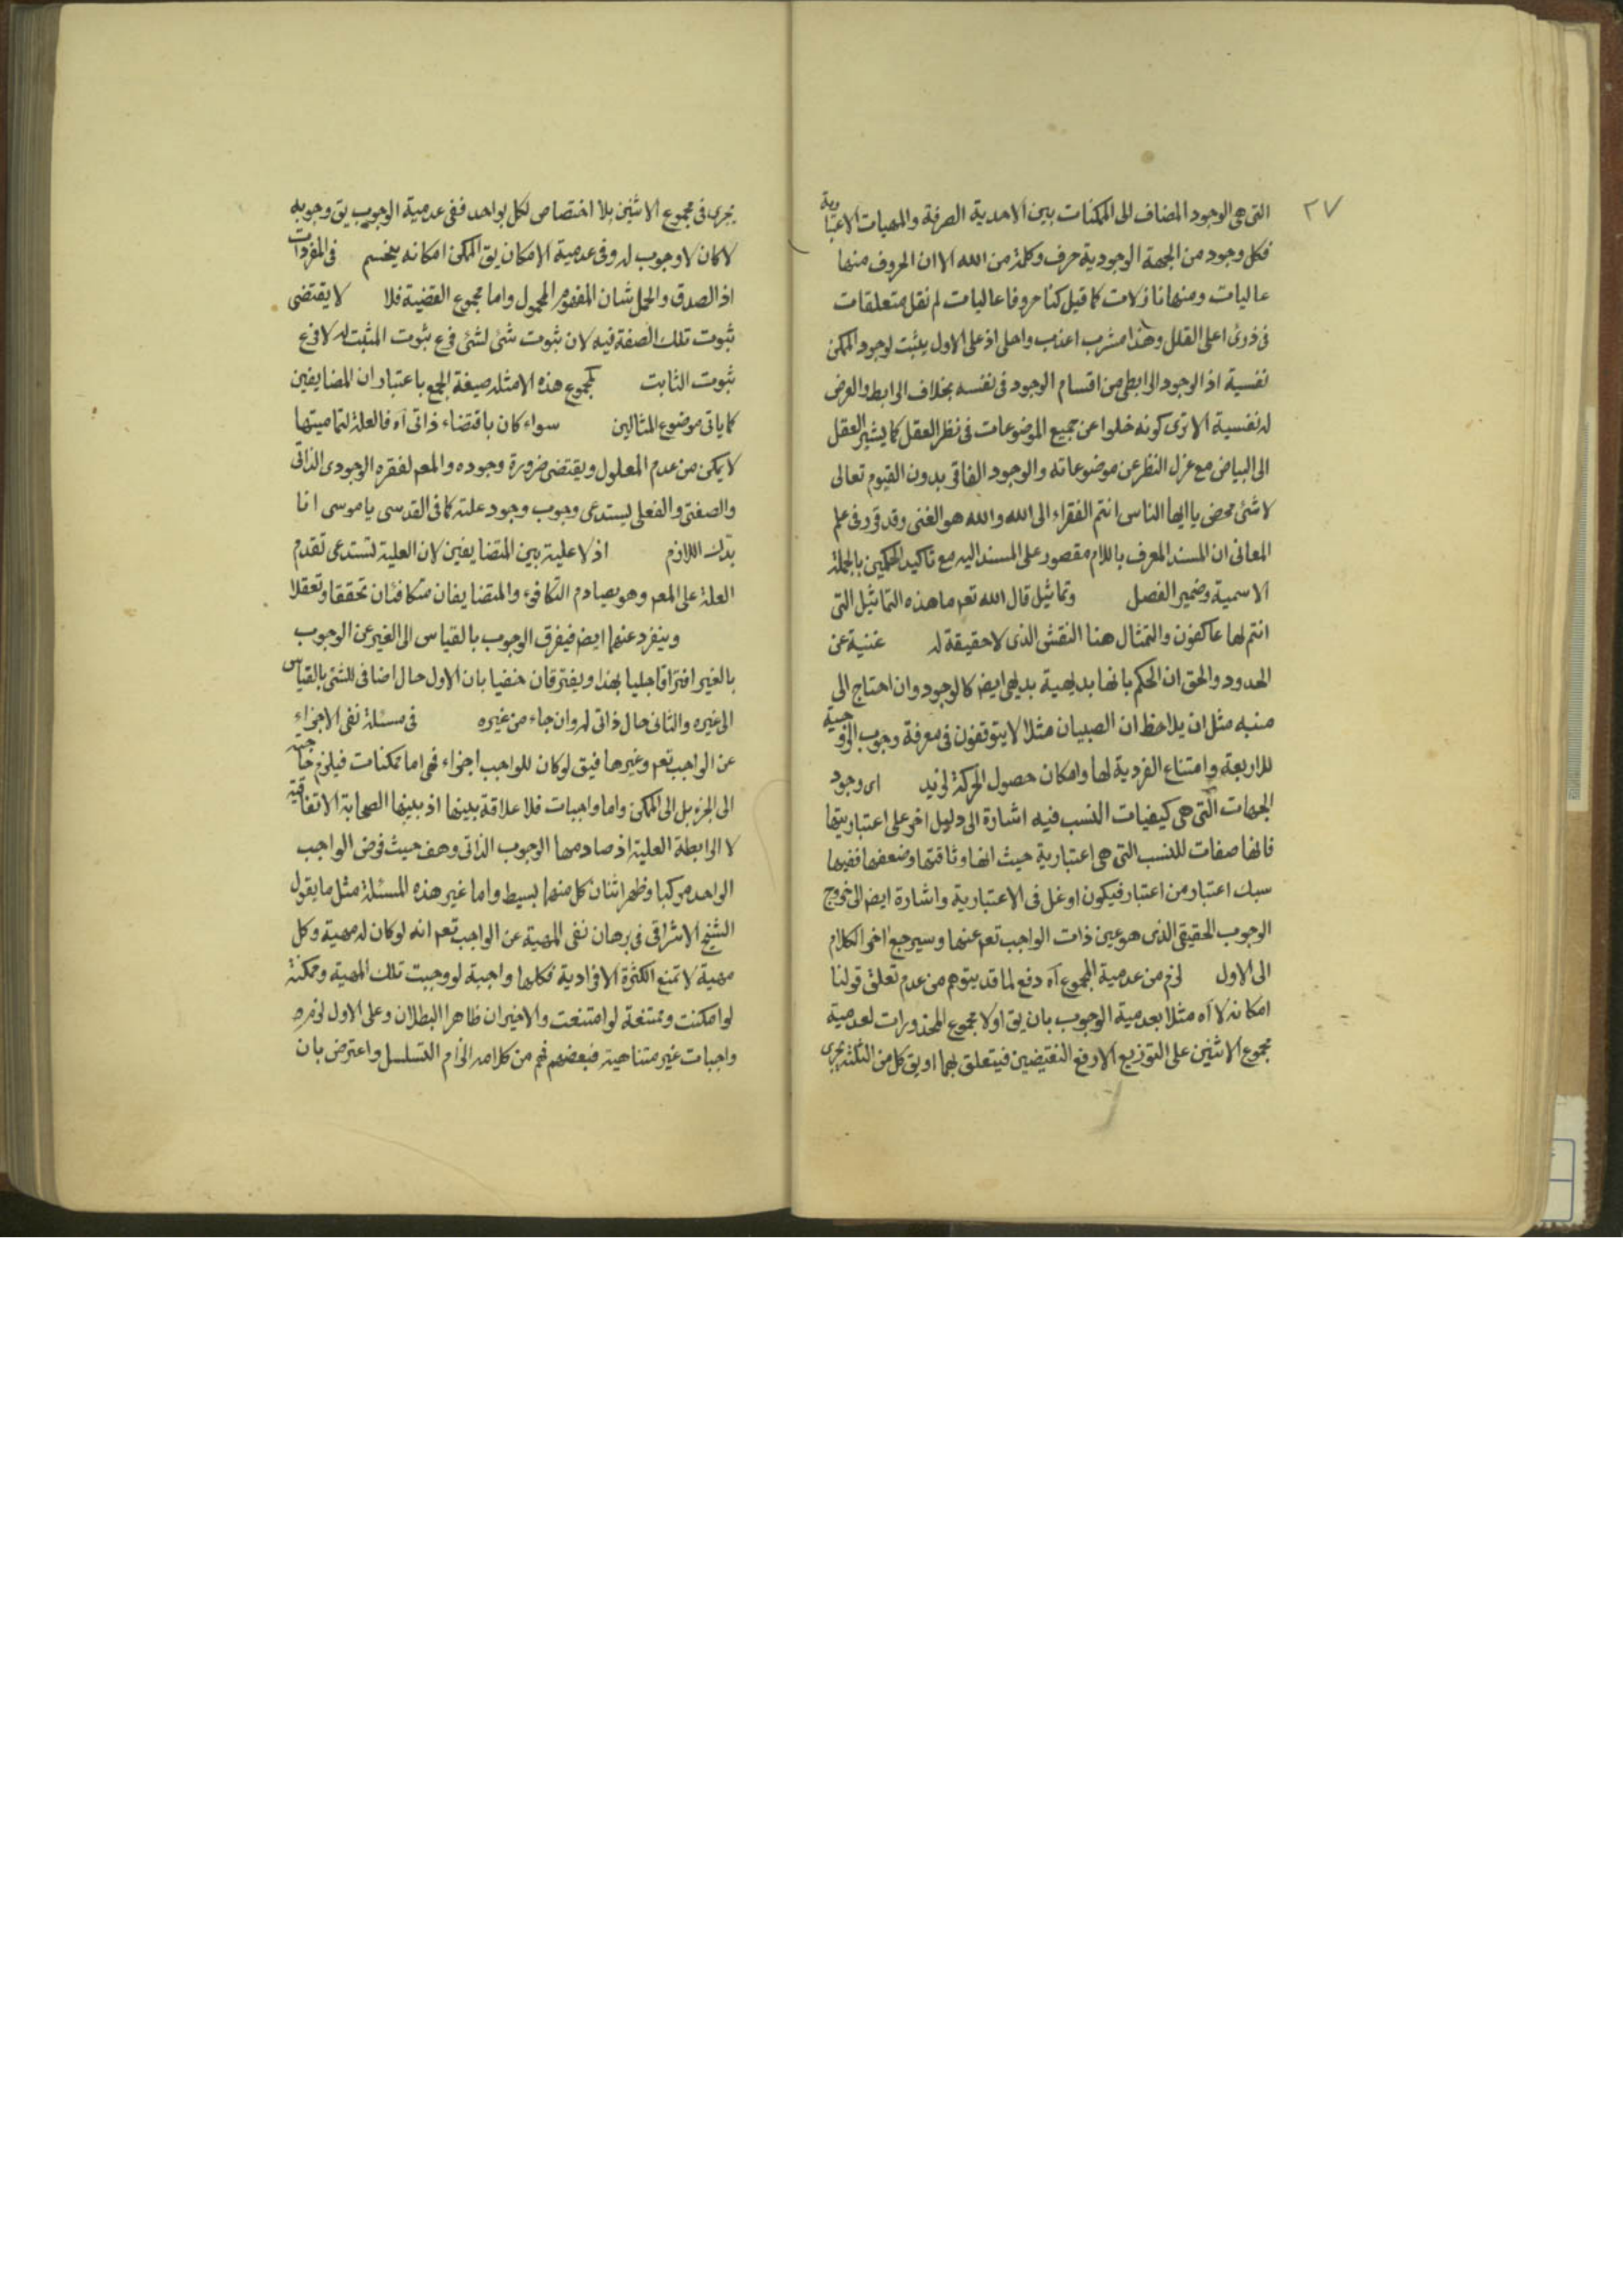 ٢٧
التى هى الوجود المضاف الى الممكنات بين الاحدية الصرفة والمهيات الاعتبارية
فكل وجود من الجهة الوجودية حرف وكلمة من الله الا ان الحروف منها
عاليات ومنها نازلات كما قيل كنا حروفا عاليات لم نقل متعلقات
فى ذرى اعلى القلل وهذا مشرب اعذب واحلى اذ على الاول يثبت لوجود الممكن
نفسية اذ الوجود الرابطى من اقسام الوجود فى نفسه بخلاف الرابط والعرض
له نفسية الا ترى كونه خلوا عن جميع الموضوعات فى نظر العقل كما يشير العقل
الى البياض مع عزل النظر عن موضوعاته والوجود الفاقى بدون القيوم تعالى
لا شئ محض يا ايها الناس انتم الفقراء الى الله والله هو الغنى وقد قرر فى علم
المعانى ان المسند المعرف باللام مقصور على المسند اليه مع تاكيد الحكمين بالجملة
الاسمية وضمير الفصل وتماثيل قال الله تعم ما هذه التماثيل التى
انتم لها عاكفون والتمثال هنا النقش الذى لا حقيقة له غنية عن
الحدود والحق ان الحكم بانها بديهية بديهى ايض كالوجود وان احتاج الى
منبه مثل ان يلاحظ ان الصبيان مثلا لا يتوقفون فى معرفة وجوب الزوجية
للاربعة وامتناع الفردية لها وامكان حصول الحركة لزيد اى وجود
الجهات التى هى كيفيات النسب فيه اشارة الى دليل اخر على اعتباريتها
فانها صفات للنسب التى هى اعتبارية حيث انها وثاقتها وضعفها ففيها
سبك اعتبار من اعتبار فيكون اوغل فى الاعتبارية واشارة ايض الى خروج
الوجوب الحقيقى الذى هو عين ذات الواجب تعم عنها وسيرجع اخر الكلام
الى الاول لزم من عدمية المجموع آه دفع لما قد يتوهم من عدم تعلق قولنا
امكانه لا آه مثلا بعدمية الوجوب بان يق اولا مجموع المحذورات لعدمية
مجموع الاثنين على التوزيع الا رفع النقيضين فيتعلق بهما او يق كل من الثلثة يجرى
يجرى فى مجموع الاثنين بلا اختصاص لكل بواحد ففى عدمية الوجوب يق وجوبه
لا كان لا وجوب له وفى عدمية الامكان يق الممكن امكانه ينحسم فى المفردات
اذ الصدق والحمل شان المفهوم المحمول واما مجموع القضية فلا لا يقتضى
ثبوت تلك الصفة فيه لان ثبوت شئ لشئ فرع ثبوت المثبت له لا فرع
ثبوت الثابت لمجموع هذه الامثلة صيغة الجمع باعتبار ان المضايفين
كما ياتى موضوع المثالين سواء كان باقتضاء ذاتى آه فالعلة لتماميتها
لا يمكن من عدم المعلول ويقتضى ضرورة وجوده والمعم لفقره الوجودى الذاتى
والصفتى والفعلى يستدعى وجوب وجود علته كما فى القدسى يا موسى انا
بدّك اللازم اذ لا علية بين المتضايفين لان العلية تستدعى تقدم
العلة على المعم وهو يصادم التكافوء والمتضايفان متكافئان تحققا وتعقلا
وينفرد عنهما ايض فيفرق الوجوب بالقياس الى الغير عن الوجوب
بالغير افتراقا جليا بهذا ويفترقان خفيا بان الاول حال اضافى للشئ بالقياس
الى غيره والثانى حال ذاتى له وان جاء من غيره فى مسئلة نفى الاجزاء
عن الواجب تعم وغيرها فيق لو كان للواجب اجزاء فهى اما ممكنات فيلزم حاجته
الى الجزء بل الى الممكن واما واجبات فلا علاقة بينها اذ بينها الصحابة الاتفاقية
لا الرابطة العلية اذ صادمها الوجوب الذاتى وهف حيث فرض الواجب
الواحد مركبا وظهر اثنان كل منهما بسيط واما غير هذه المسئلة مثل ما يقول
الشيخ الاشراقى فى برهان نفى المهية عن الواجب تعم انه لو كان له مهية وكل
مهية لا تمنع الكثرة الافرادية فكلها واجبة لو وجبت تلك المهية وممكنة
لو امكنت وممتنعة لو امتنعت والاخيران ظاهرا البطلان وعلى الاول لزم
واجبات غير متناهية فبعضهم فهم من كلامه الزام التسلسل واعترض بان